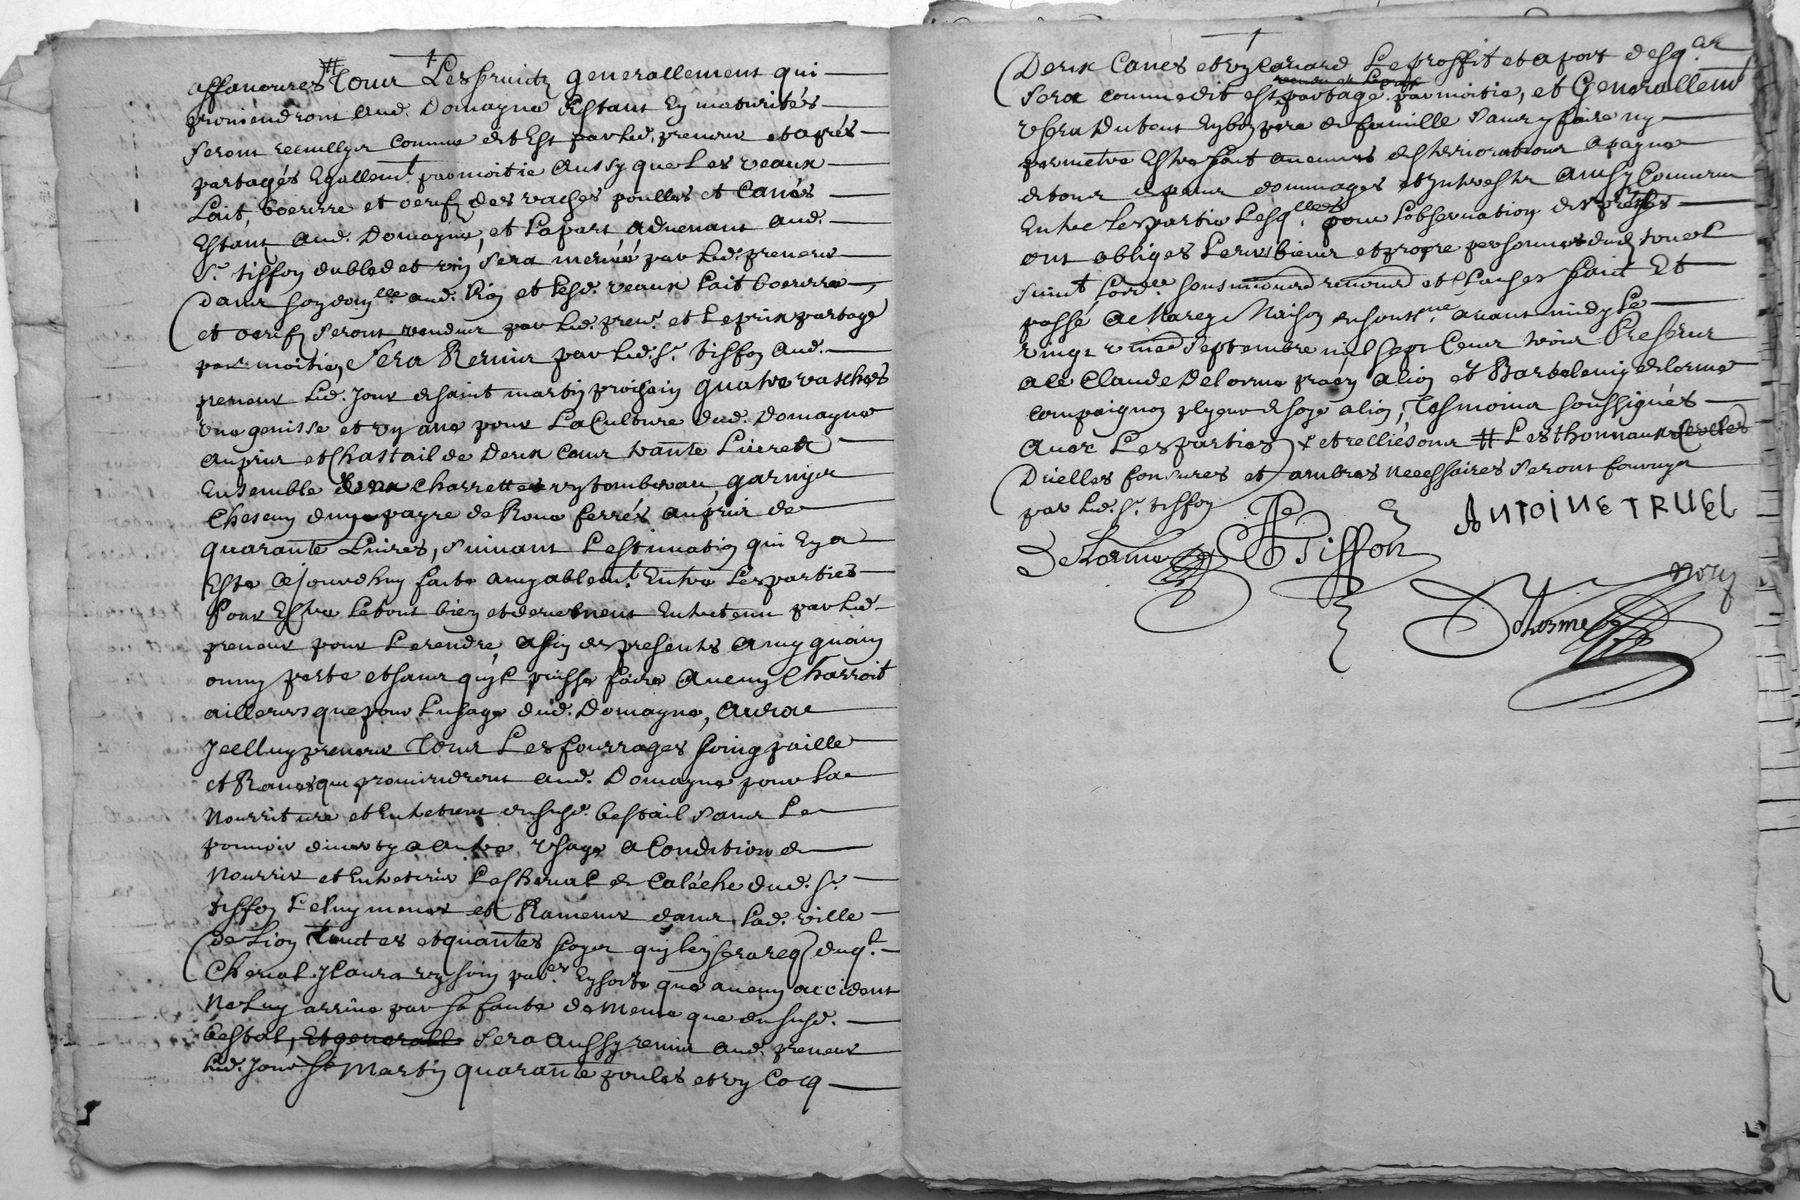 affanoures # Tous Les fruictz generallement qui
proviendront aud. Domayne Estant En maturités
seront recuillyr comme dit Est par led. preneur et aprés
partagés Egallemt. par moitie aussy que Les veaux
Lait, boeurre et oeufs des vaches poulles et Canés
Estant aud. Domayne, et La part advenant aud.
Sr. tiffon du bled et vin sera menée par led. preneur
dans son domlle. aud. lion et lesd. veaux Lait boeurre
et oeufs seront vendus par led. prenr. et Le prix partagé
par moitié, sera Remis par led. sr. tiffon aud.
preneur Led. Jour de saint martin prochain quatre vaches
une genisse et un ane pour La Culture dud. Domayne
au prix et Chastail de Deux Cent trante Livres
Ensemble une charrette un tombereau garnyer
Chescun d'une payre de Roue ferrés au prix de
quarante Livres, suivant L'estimation qui En a
Esté ce jourdhuy faite amyablemt. Entre Les parties
Pour Estre Le tout bien et deuement Entretenu par led.
preneur pour Le rendre, a fin des presents a my guain
ou my perte et sans qu'yl puisse faire aucung Charroit
ailleurs que pour L'usage dud. Domayne, aura
Jcelluy preneur Tous Les fourrages foing paille
et Raves qui proviendront aud. Domayne pour La
Nourriture et Entretient du susd. bestail sans Le
pouvoir divertyr a autre usage a Condition de
Nourrir et Entretenir Le Cheval de Caléche dud. sr.
tiffon Le luy mener et Ramener dans Lad. ville
de Lion toutes et quantes foyes qu'yl en sera req. duql.
Cheval Jl aura un soin pater. En sorte que aucun accident
Ne luy arrive par sa faute de meme que du susd.
bestal, Et generalle sera aussy remis aud. preneur
led. Jour st Martin quarante poules et un Cocq
Deux Canes et un Canard Le proffit et a port desq.
sera comme dit est partagé par moitie, et Generallemt
usera Du tout En bon pere de famille sans y faire ny
permetre Estre fait aucunes desterriorations a peyne
de tous depans dommages et Jnterests ainsy Convenu
Entre Les parties Lesqlles pour L'observation des presentes
ont obligés Leurs biens et propre personnes dud. truel
suivt Lord.ce soumission renond renond et Clauses fait Et
passé a Charey Maison du sousne avant midy Le
vingt uniè septembre mil sept Cent trois Present
Me Claude Delorme pracn a lion et Bartelemy delorme
compaignon plyeur de soye a lion, Tesmoins soussignés
avec Les parties, et relliésons # Les thonnaux
Duelles fonsures et ambres necessaires seront fournyr
par Led. sr. tiffon
ANTOINE TRUEL
Delorme Tiffon
Delorme nore